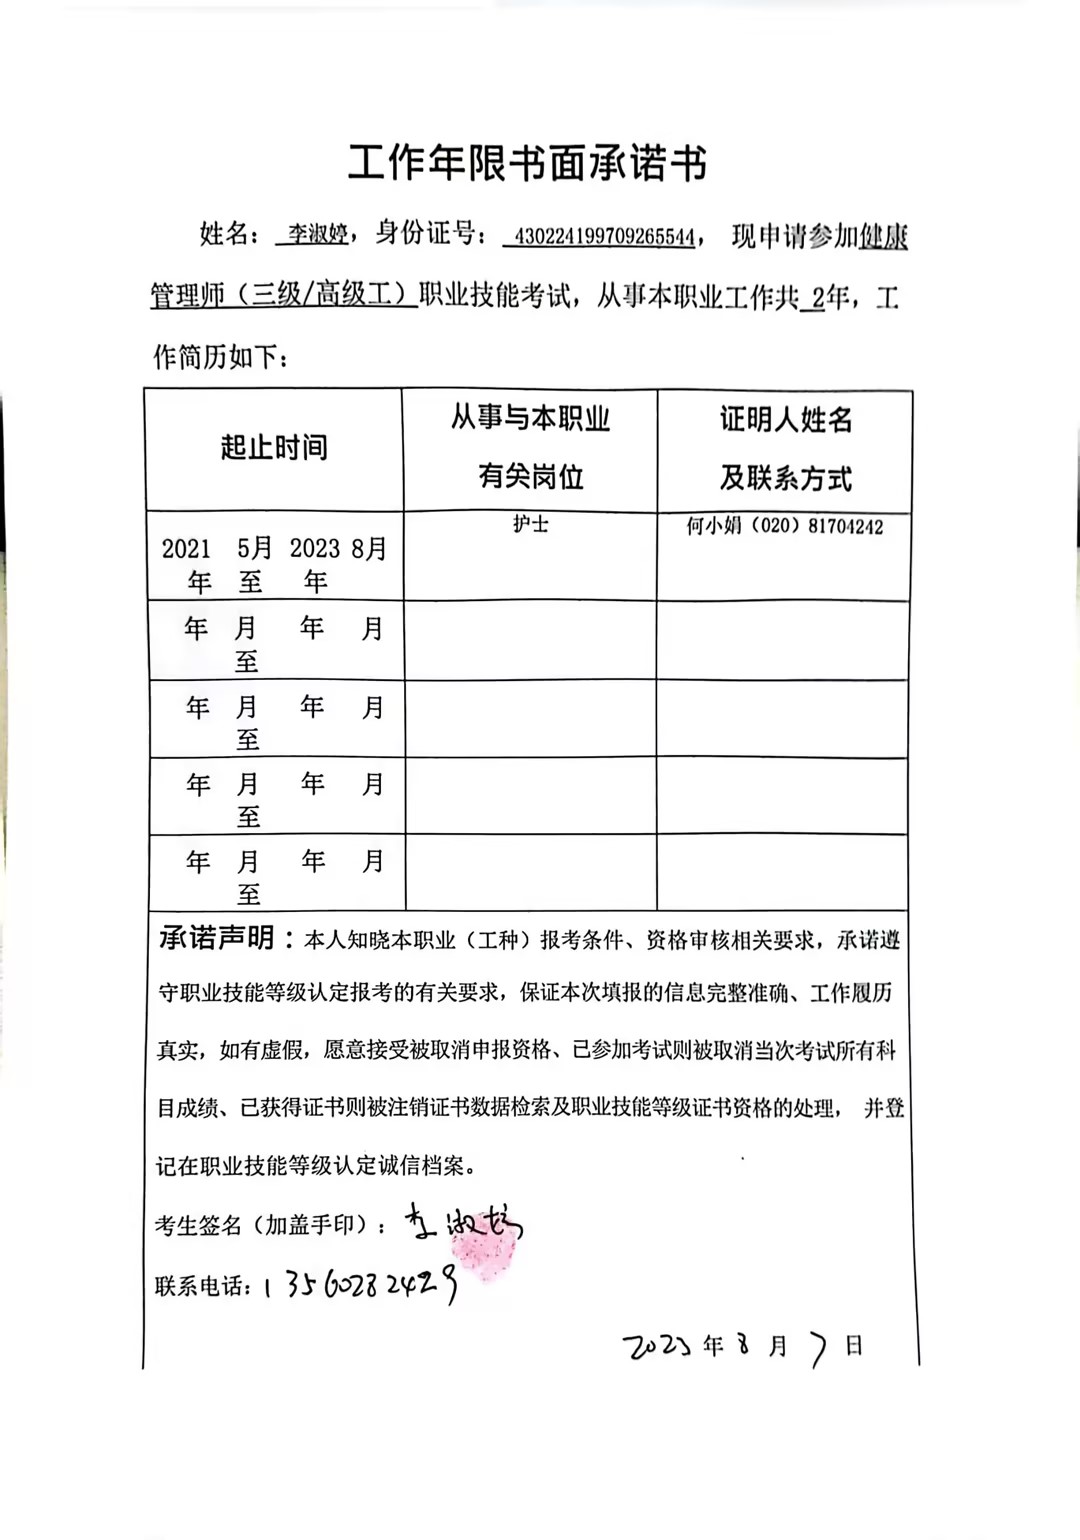 工作年限书面承诺书
姓名：李淑婷，身份证号：430224199709265544，现申请参加健康
管理师（三级/高级工）职业技能考试，从事本职业工作共 2年，工
作简历如下：
起止时间
从事与本职业
有关岗位
证明人姓名
及联系方式
2021 5月 2023 8月
年 至 年
护士
何小娟（020）81704242
年 月 年 月
至
年 月 年 月
至
年 月 年 月
至
年 月 年 月
至
承诺声明：本人知晓本职业（工种）报考条件、资格审核相关要求，承诺遵
守职业技能等级认定报考的有关要求，保证本次填报的信息完整准确、工作履历
真实，如有虚假，愿意接受被取消申报资格、已参加考试则被取消当次考试所有科
目成绩、已获得证书则被注销证书数据检索及职业技能等级证书资格的处理，并登
记在职业技能等级认定诚信档案。
考生签名（加盖手印）：李淑婷
联系电话：13560282429
2023年8月7日